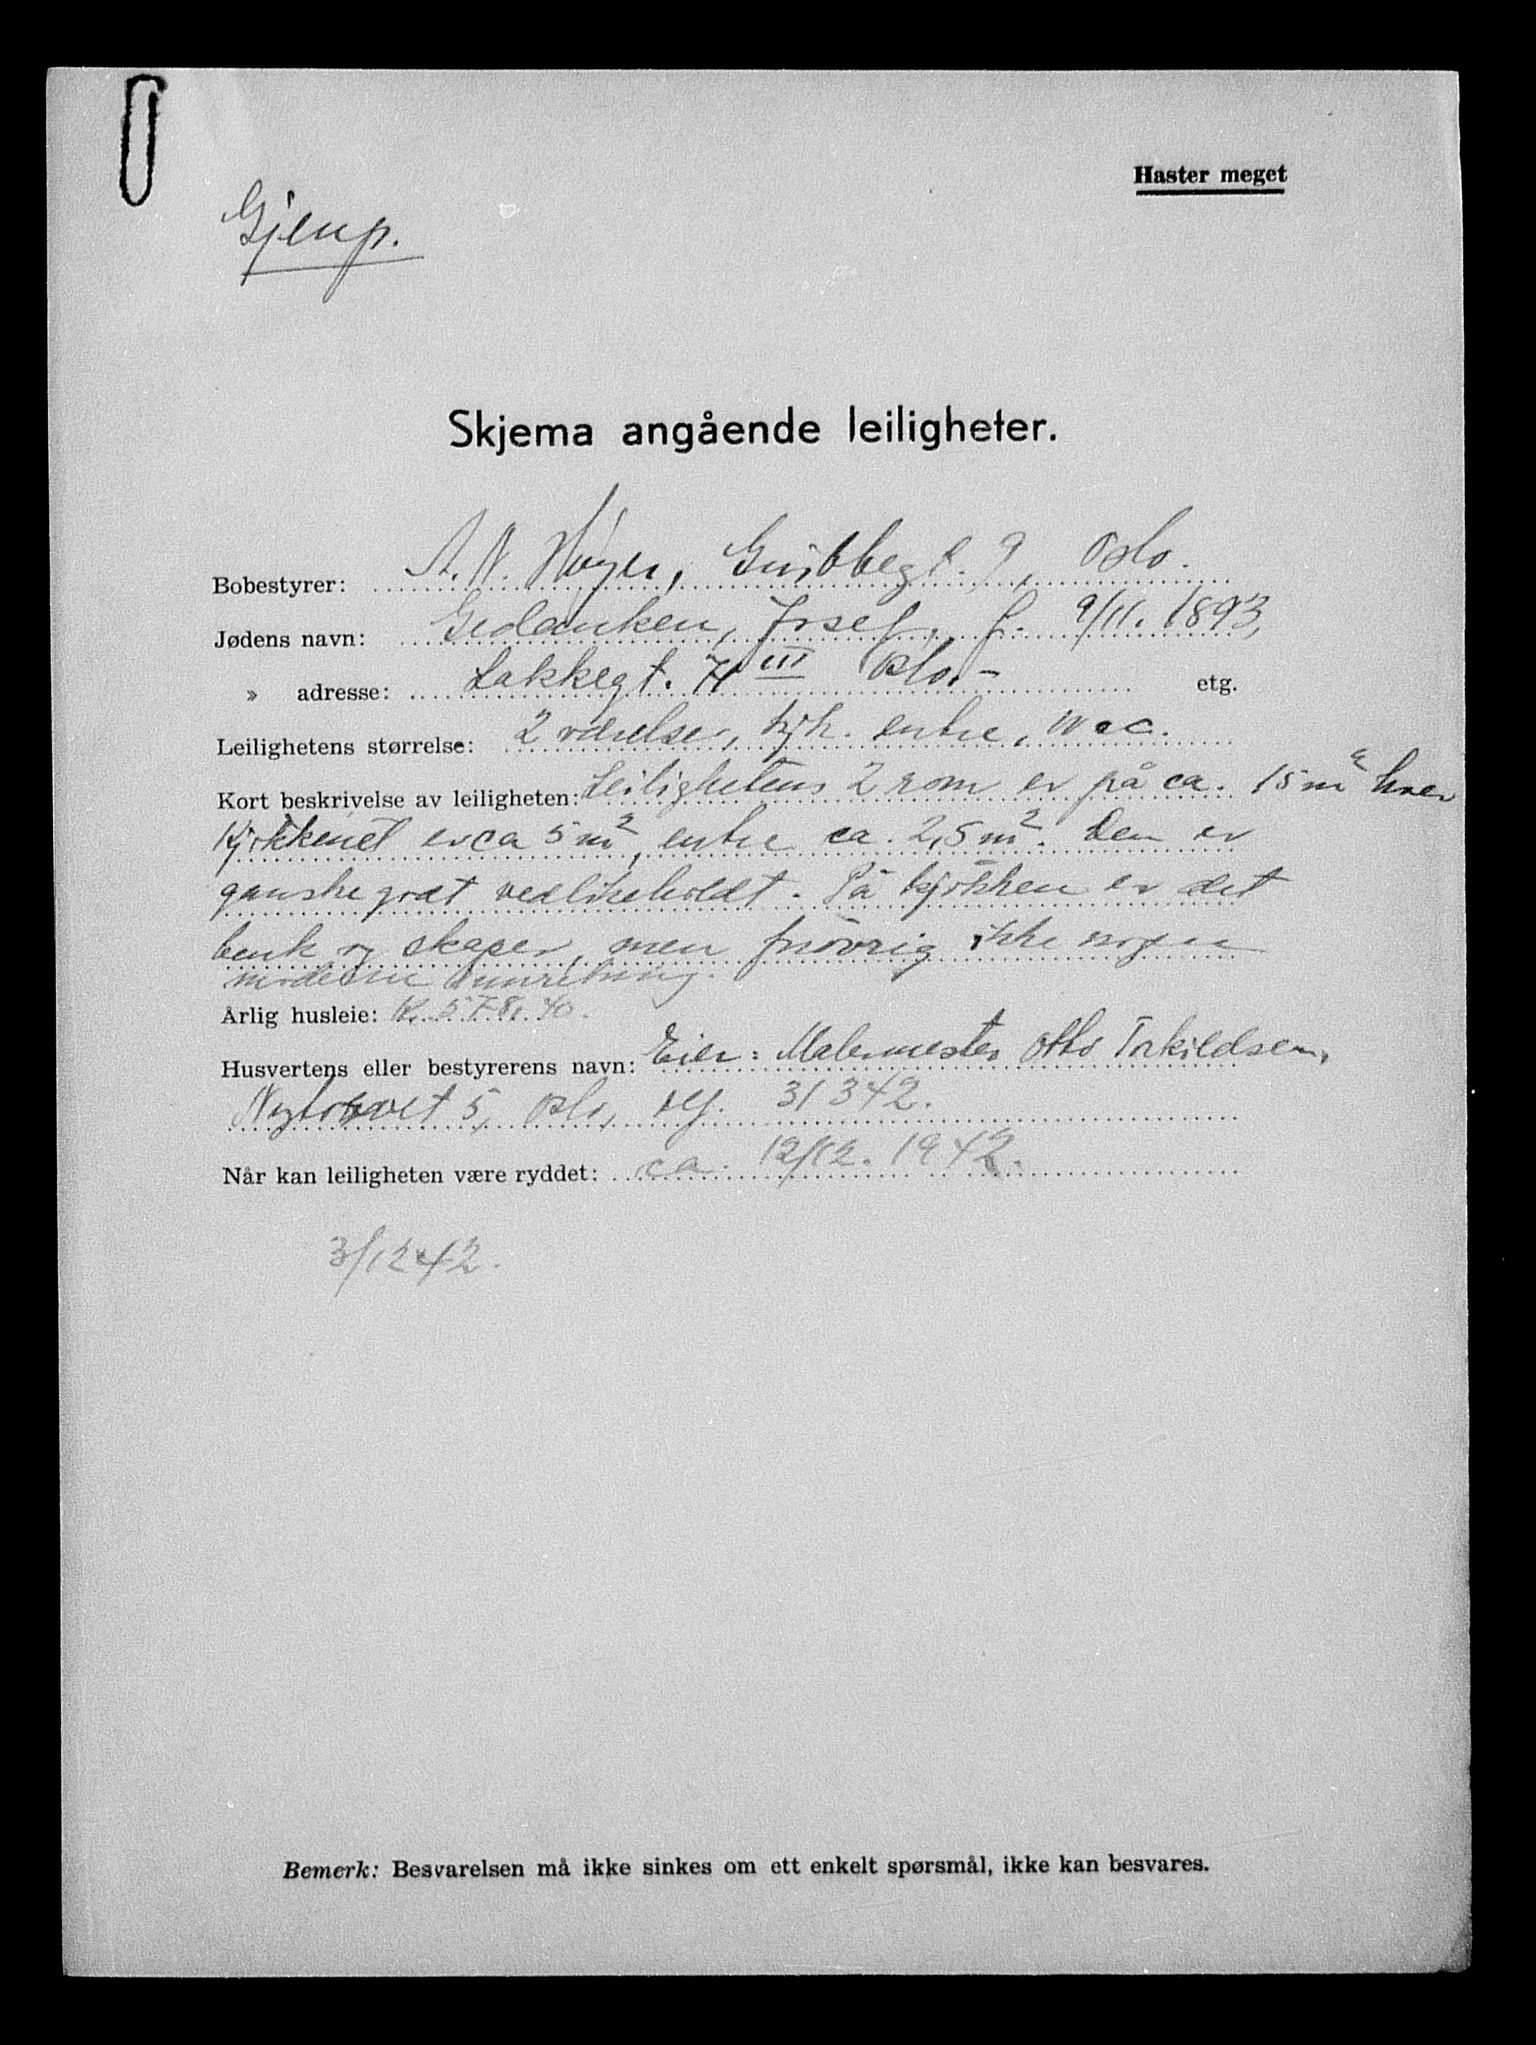 Haster meget
Gjenp.
Skjema angående leiligheter.
Bobestyrer: A. N. Høyer, Grubbegt. 9, Oslo.
Jødens navn: Gedanken, Josef, f. 9/11. 1893,
» adresse: Lakkegt. 7 III Oslo. - etg.
Leilighetens størrelse: 2 værelser, kjk. entre, w c.
Kort beskrivelse av leiligheten: Leilighetens 2 rom er på ca. 15 m² hver
Kjøkkenet er ca 5 m², entre ca. 2,5 m². Den er
ganske godt vedlikeholdt. På kjøkken er det
benk og skaper, men forøvrig ikke nogen
moderne innretning.
Årlig husleie: K. 578,40.
Husvertens eller bestyrerens navn: Eier: Malermester Otto Torkildsen,
Nytorvet 5, Oslo, 31342.
Når kan leiligheten være ryddet: ca. 12/12. 1942.
3/12 42.
Bemerk: Besvarelsen må ikke sinkes om ett enkelt spørsmål, ikke kan besvares.